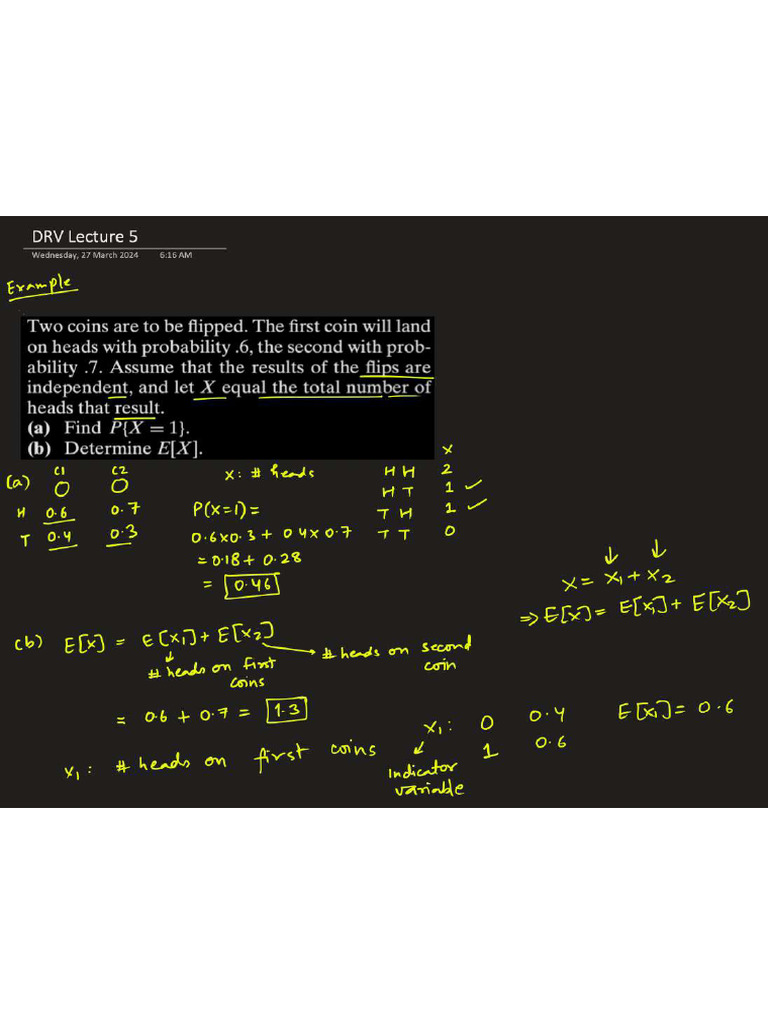 DRV Lecture 5
Wednesday, 27 March 2024 6:16 AM
Example
Two coins are to be flipped. The first coin will land
on heads with probability .6, the second with prob-
ability .7. Assume that the results of the flips are
independent, and let X equal the total number of
heads that result.
(a) Find P{X = 1}.
(b) Determine E[X].
(a) C1 C2
H 0.6 0.7
T 0.4 0.3
X: # heads
P(X=1)=
0.6x0.3 + 0.4x0.7
= 0.18 + 0.28
= 0.46
X
HH 2
HT 1 ✓
TH 1 ✓
TT 0
X = X1 + X2
⇒ E[X] = E[X1] + E[X2]
(b) E[X] = E[X1] + E[X2]
# heads on first
coins
# heads on second
coin
= 0.6 + 0.7 = 1.3
X1: # heads on first coins
X1: 0 0.4
1 0.6
Indicator
variable
E[X1] = 0.6